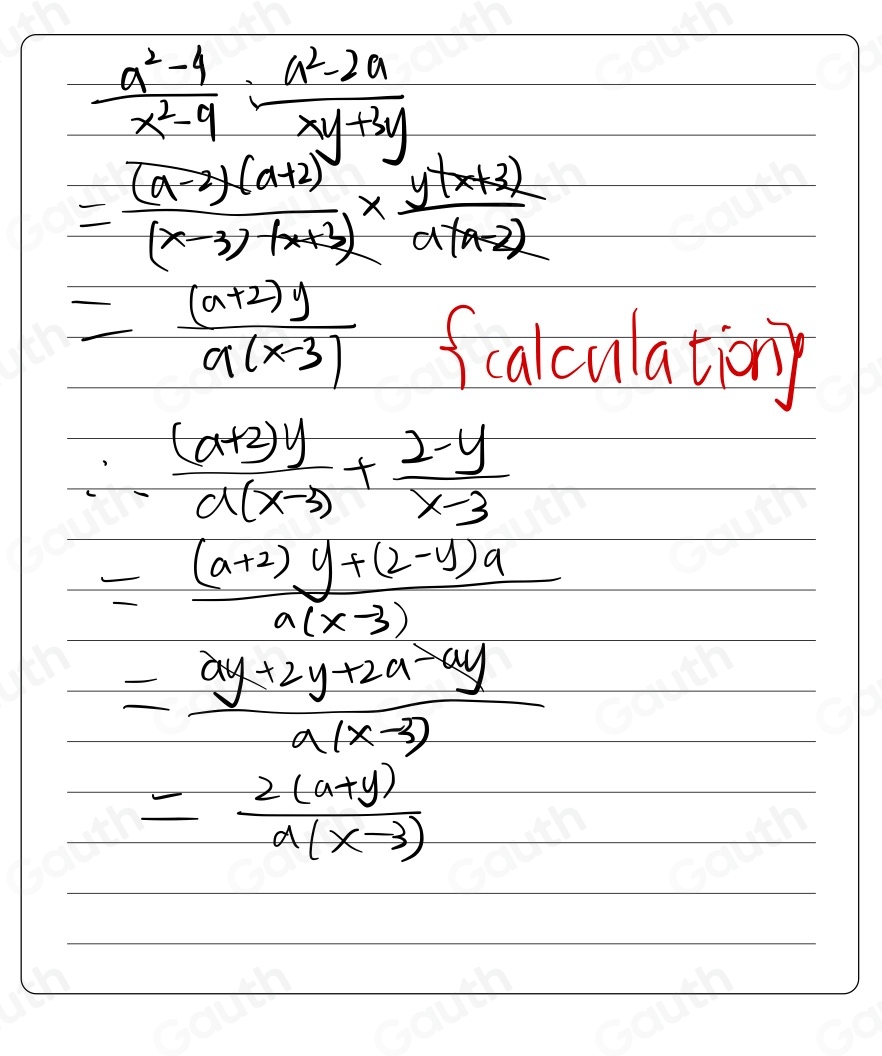 \frac{a^2-4}{x^2-9} : \frac{a^2-2a}{xy+3y}
= \frac{(a-2)(a+2)}{(x-3)(x+3)} × \frac{y(x+3)}{a(a-2)}
= \frac{(a+2)y}{a(x-3)}
{calculation}
∴ \frac{(a+2)y}{a(x-3)} + \frac{2-y}{x-3}
= \frac{(a+2)y+(2-y)a}{a(x-3)}
= \frac{ay+2y+2a-ay}{a(x-3)}
= \frac{2(a+y)}{a(x-3)}
Gauth